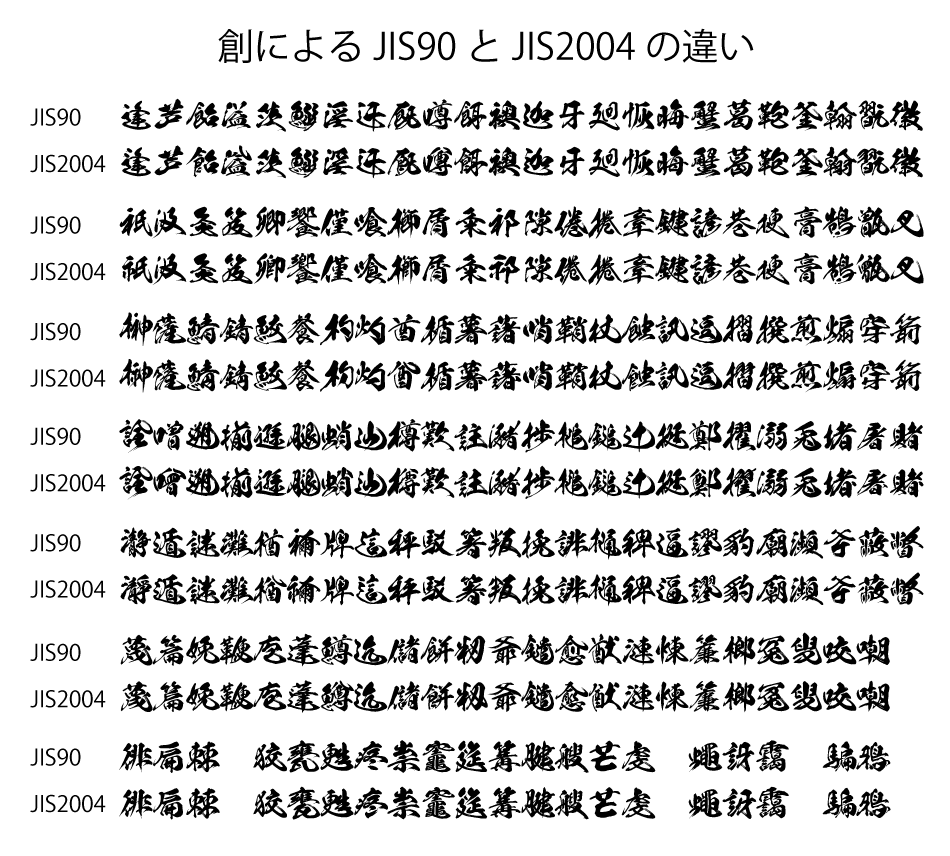 創によるJIS90とJIS2004の違い
JIS90 逢芦飴溢茨鰯淫迂厩噂餌襖迦牙廻恢晦蟹葛鞄釜翰翫徽
JIS2004 逢芦飴溢茨鰯淫迂厩噂餌襖迦牙廻恢晦蟹葛鞄釜翰翫徽
JIS90 祇汲灸笈卿饗僅喰櫛屑粂祁隙倦捲牽鍵諺巷梗膏鵠甑叉
JIS2004 祇汲灸笈卿饗僅喰櫛屑粂祁隙倦捲牽鍵諺巷梗膏鵠甑叉
JIS90 榊薩鯖錆鮫餐杓灼酋楯薯藷哨鞘杖蝕訊逗摺撰煎煽穿箭
JIS2004 榊薩鯖錆鮫餐杓灼酋楯薯藷哨鞘杖蝕訊逗摺撰煎煽穿箭
JIS90 詮噌遡揃遜腿蛸辿樽歎註瀦捗槌鎚辻挺鄭擢溺兎堵屠賭
JIS2004 詮噌遡揃遜腿蛸辿樽歎註瀦捗槌鎚辻挺鄭擢溺兎堵屠賭
JIS90 瀞遁謎灘楢禰牌這秤駁箸叛挽誹樋稗逼謬豹廟瀕斧蔽瞥
JIS2004 瀞遁謎灘楢禰牌這秤駁箸叛挽誹樋稗逼謬豹廟瀕斧蔽瞥
JIS90 蔑篇娩鞭庖蓬鱒迄儲餅籾爺鑓愈猷漣煉簾榔冤叟咬嘲
JIS2004 蔑篇娩鞭庖蓬鱒迄儲餅籾爺鑓愈猷漣煉簾榔冤叟咬嘲
JIS90 徘扁棘 狡甕甦疼祟竈筵篝腱艘芒虔 蠅訝靄 騙鴉
JIS2004 徘扁棘 狡甕甦疼祟竈筵篝腱艘芒虔 蠅訝靄 騙鴉